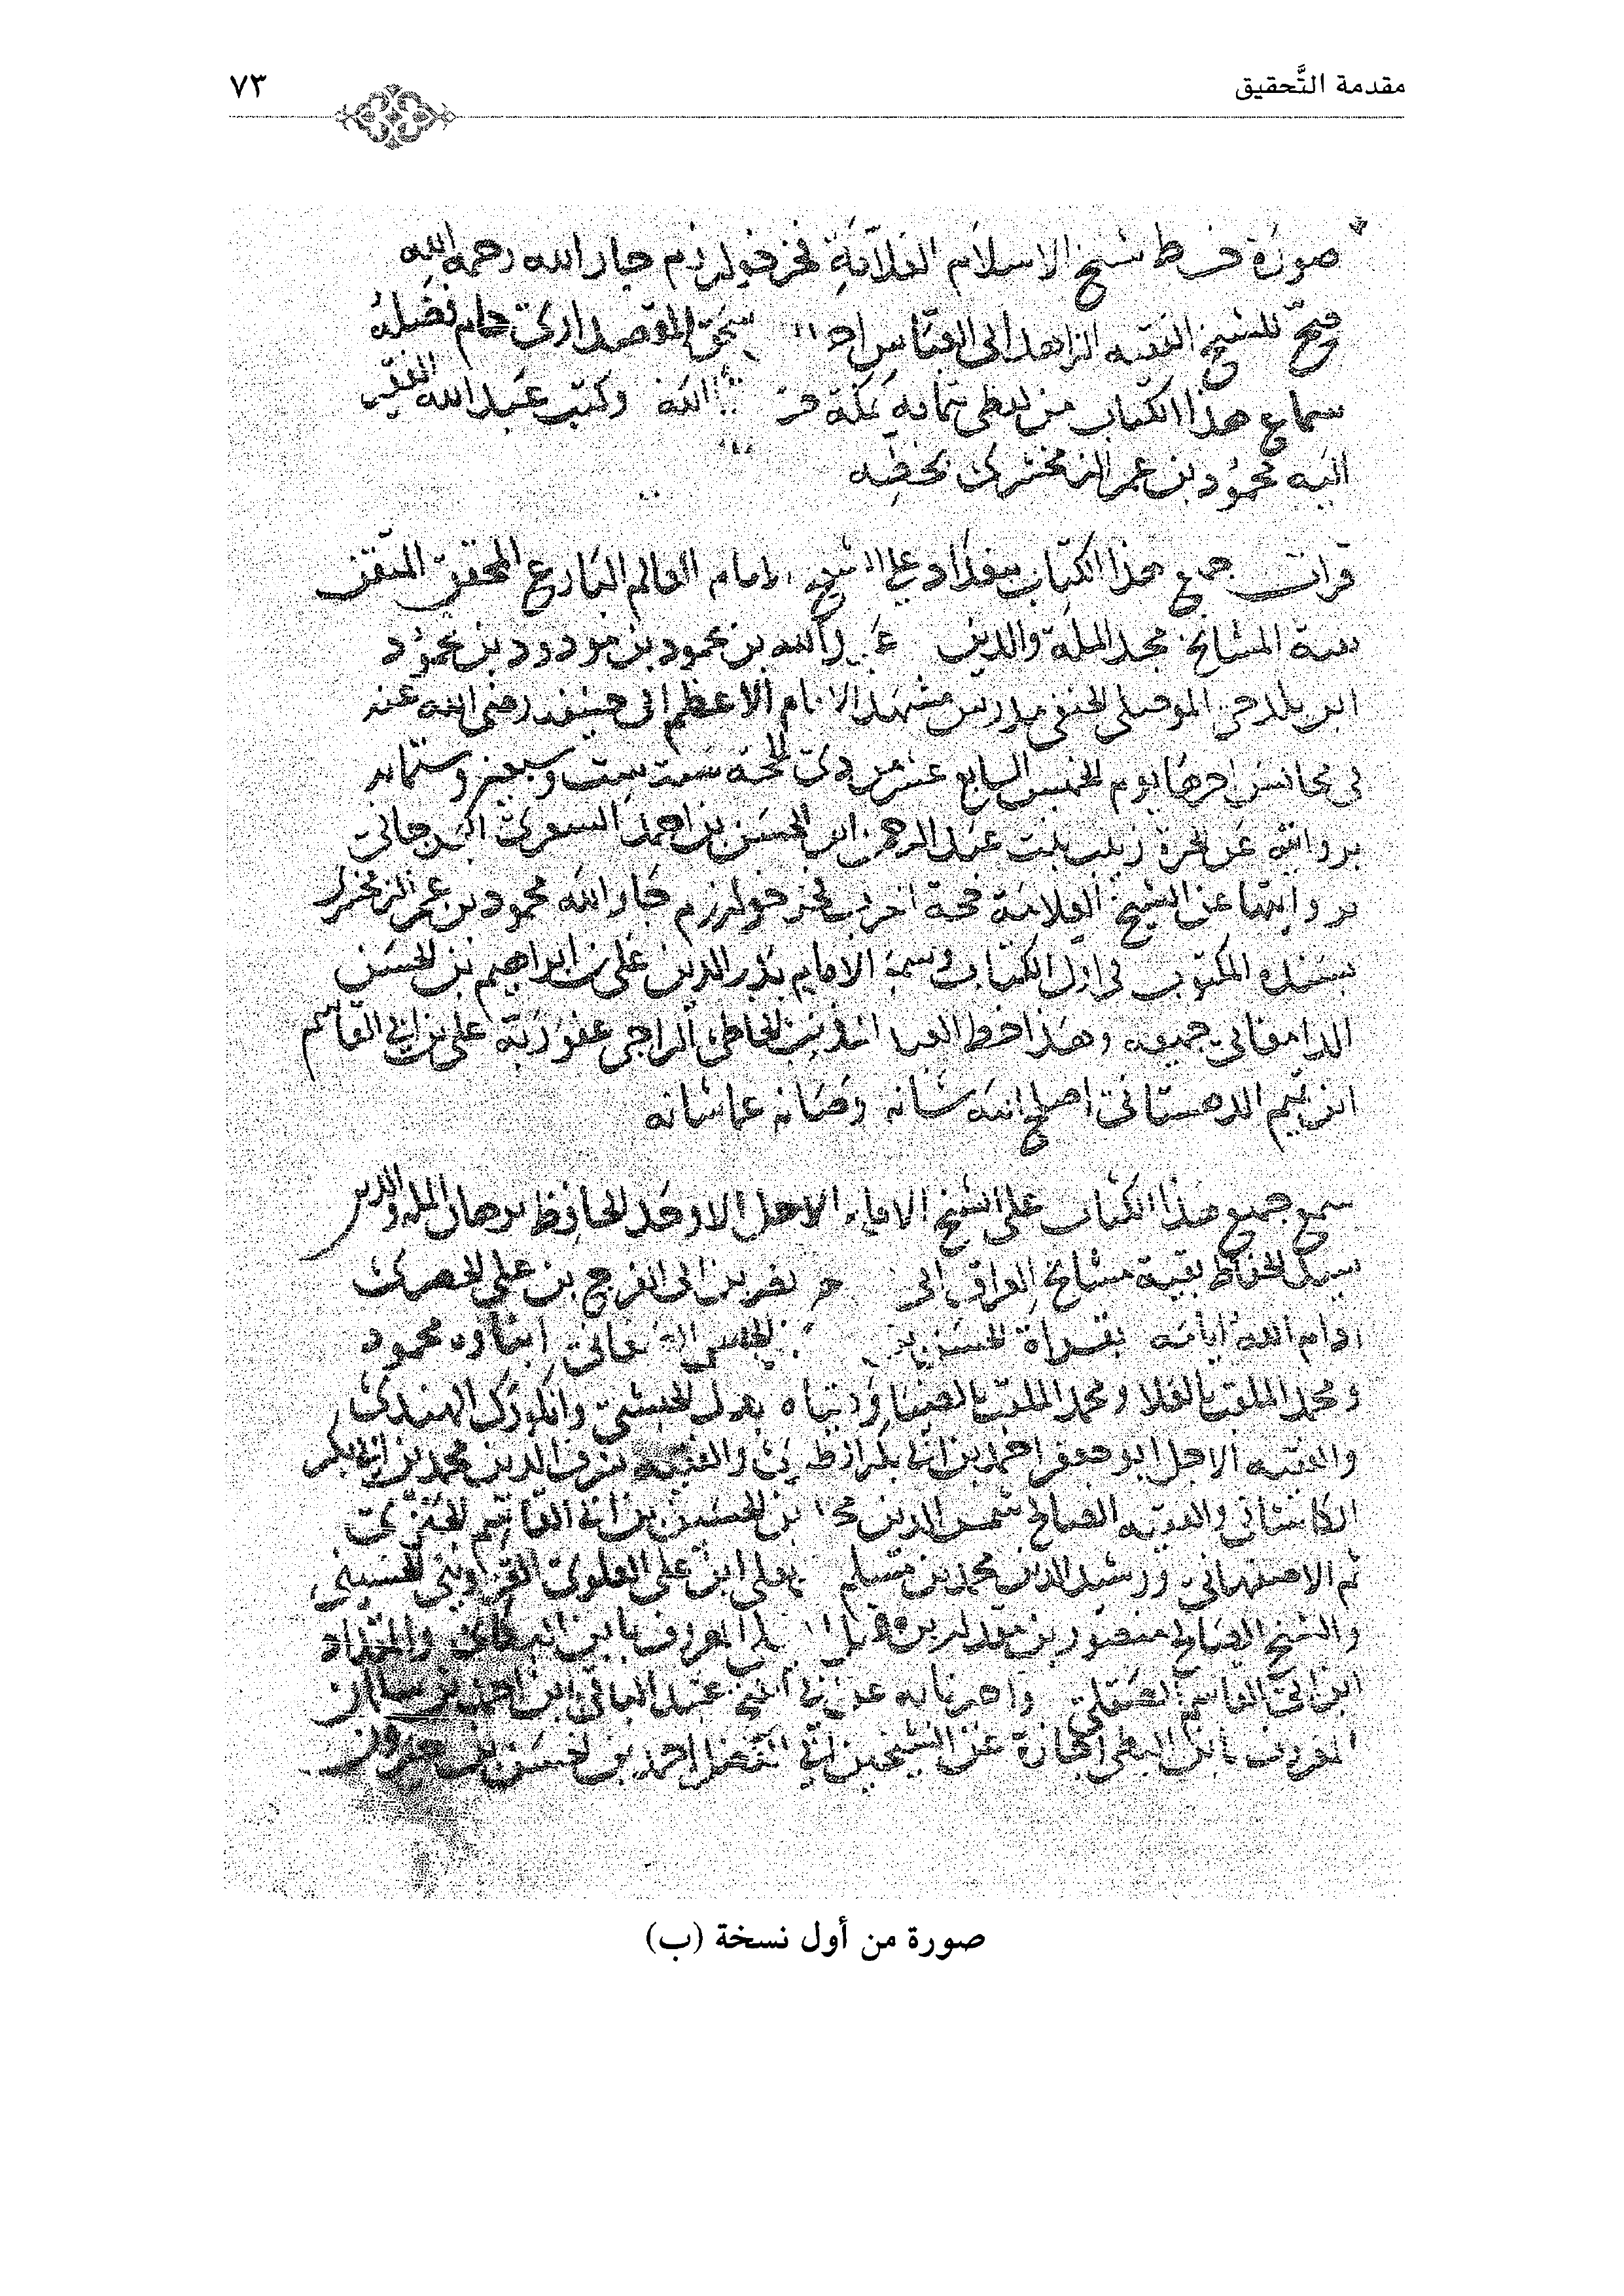 مقدمة التَّحقيق
٧٣
صورة خط شيخ الاسلام العلامة فخر خوارزم جار الله رحمه الله
صح للشيخ الفقيه الزاهد ابى العباس
سماع هذا الكتاب من لفظى بمكة الله وكتب عبد الله الفقير
اليه محمود بن عمر الزمخشرى بخطه
قرات جميع هذا الكتاب ببغداد على الشيخ الامام العالم البارع المحقق المتقن
بقية المشايخ مجد الملة والدين الله بن محمود بن مودود بن محمود
ابن بلدجى الموصلى الحنفى مدرس مشهد الامام الاعظم ابى حنيفه رضى الله عنه
فى مجالس اخرها يوم الخميس السابع عشر من ذى الحجة سنة ست وسبعين وستمايه
بروايته عن الحرة زينب بنت عبد الرحمن ابن الحسن بن احمد السعرى الجرجانى
بروايتها عن الشيخ العلامة فخر خوارزم جار الله محمود بن عمر الزمخشرى
بسنده المكتوب فى اول الكتاب وسمع الامام بدر الدين على بن ابراهيم بن الحسن
الدامغانى جميعه وهذا خط العبد المذنب الخاطى الراجى عفو ربه على بن ابى القاسم
ابن تميم الدهستانى اصلح الله شانه وصانه عما شانه
سمع جميع هذا الكتاب على الشيخ الامام الاجل الاوحد الحافظ برهان الملة والدين
سيد الحفاظ بقية مشايخ العراق ابى نصر بن ابى الفرج بن على الحصرى
ادام الله ايامه بقراة الحسن بن ابناوه محمود
ومحمد الملقب بالعلا ومحمد الملقب بالضيا وفتياه الحبشى الهندى
والفقيه الاجل ابو جعفر احمد بن ابى بكر والفقيه شرف الدين محمد بن ابى بكر
الكاشانى والفقيه الصالح شمس الدين بن الحسين بن ابى القاسم
ثم الاصفهانى ورشيد الدين محمد بن مسلم ابن على العلوى الحسينى
والشيخ الصالح منصور بن المعروف بابن
ابن ابى القاسم الصقلى واخبرنا به عن الشيخ عبد الباقى ابن احمد بن سلمان
المعروف بابن البطى اجازة عن الشيخين ابى الفضل احمد بن الحسن بن خيرون
صورة من أول نسخة (ب)